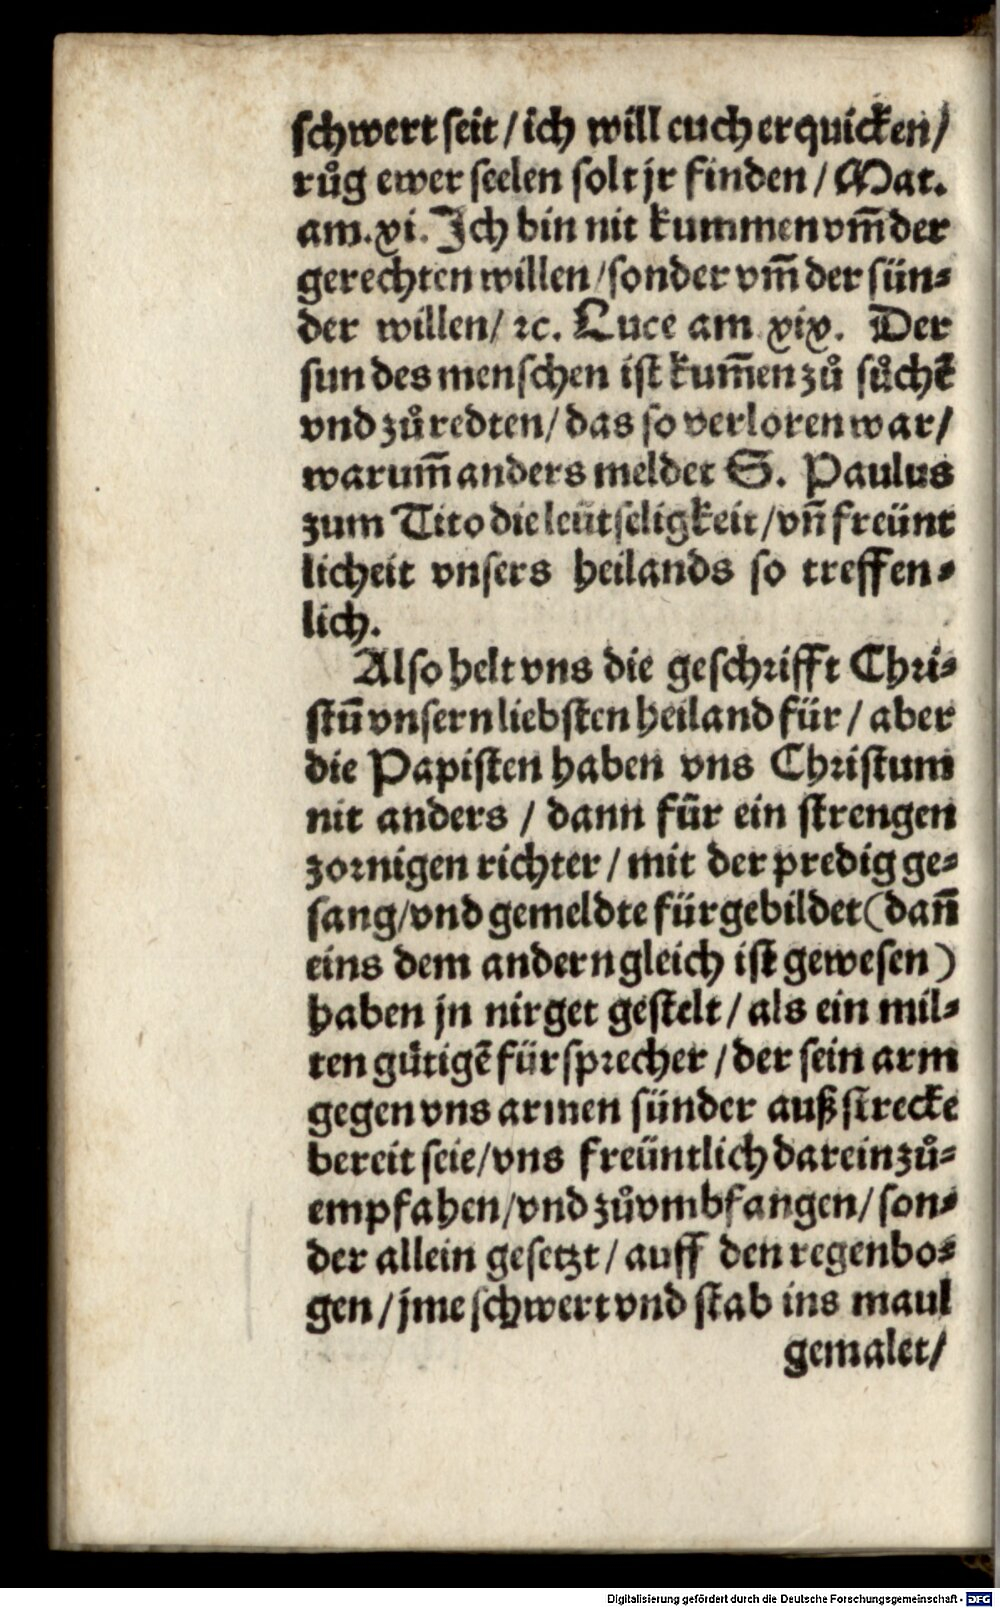 schwert seit / ich will euch erquicken /
růg ewer seelen solt jr finden / Mat.
am.xi. Ich bin nit kummen vm̄ der
gerechten willen / sonder vm̄ der sün⸗
der willen / ⁊c. Luce am xix. Der
sun des menschen ist kum̄en zů sůchē
vnd zů redten / das so verloren war /
warum̄ anders meldet S. Paulus
zum Tito die leütseligkeit / vn̄ freünt
licheit vnsers heilands so treffen⸗
lich.
Also helt vns die geschrifft Chri⸗
stū vnsern liebsten heiland für / aber
die Papisten haben vns Christum
nit anders / dann für ein strengen
zornigen richter / mit der predig ge⸗
sang / vnd gemeldte fürgebildet (dan̄
eins dem andern gleich ist gewesen)
haben jn nirget gestelt / als ein mil⸗
ten gütigē fürsprecher / der sein arm
gegen vns armen sünder außstrecke
bereit seie / vns freüntlich darein zů⸗
empfahen / vnd zů vmbfangen / son⸗
der allein gesetzt / auff den regenbo⸗
gen / jme schwert vnd stab ins maul
gemalet /
Digitalisierung gefördert durch die Deutsche Forschungsgemeinschaft - DFG